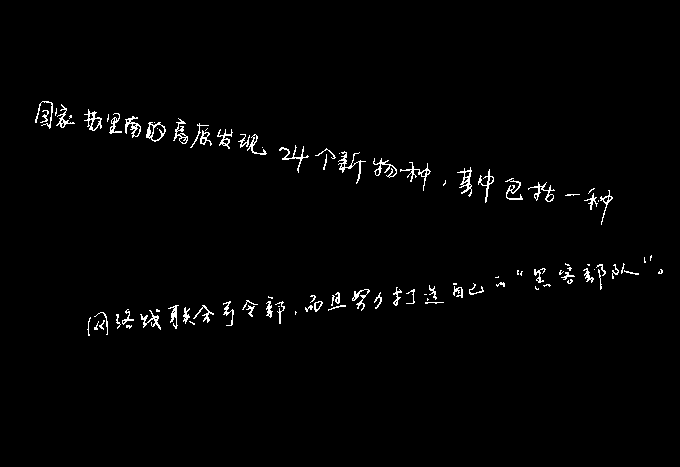 国家苏里南的高原发现24个新物种，其中包括一种
网络战联合司令部，而且努力打造自己的“黑客部队”。